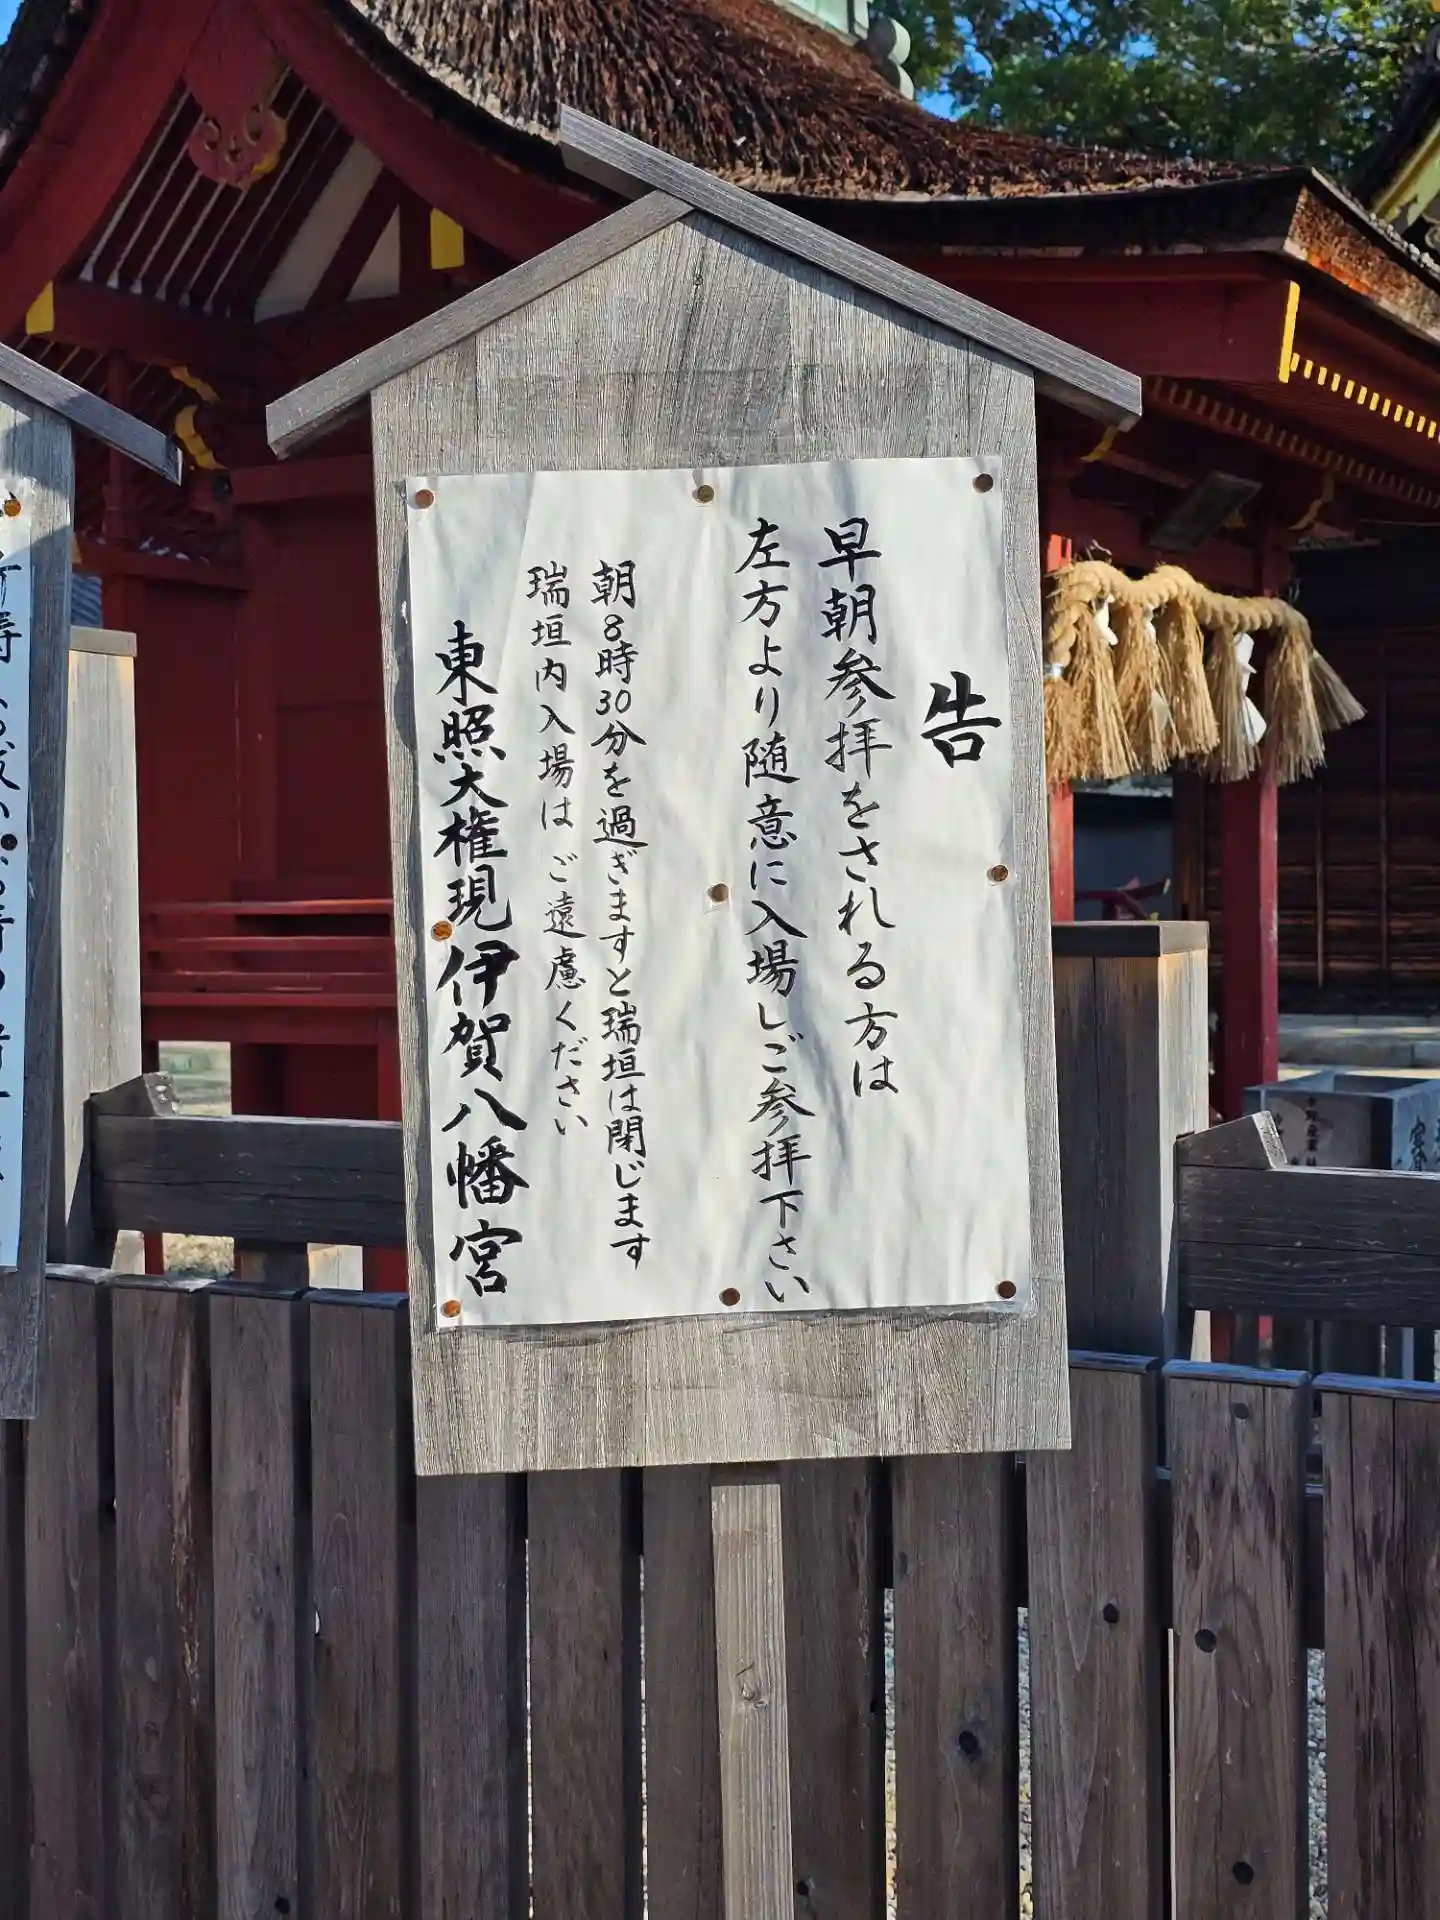 告
早朝参拝をされる方は
左方より随意に入場しご参拝下さい
朝8時30分を過ぎますと瑞垣は閉じます
瑞垣内入場は ご遠慮ください
東照大権現 伊賀八幡宮